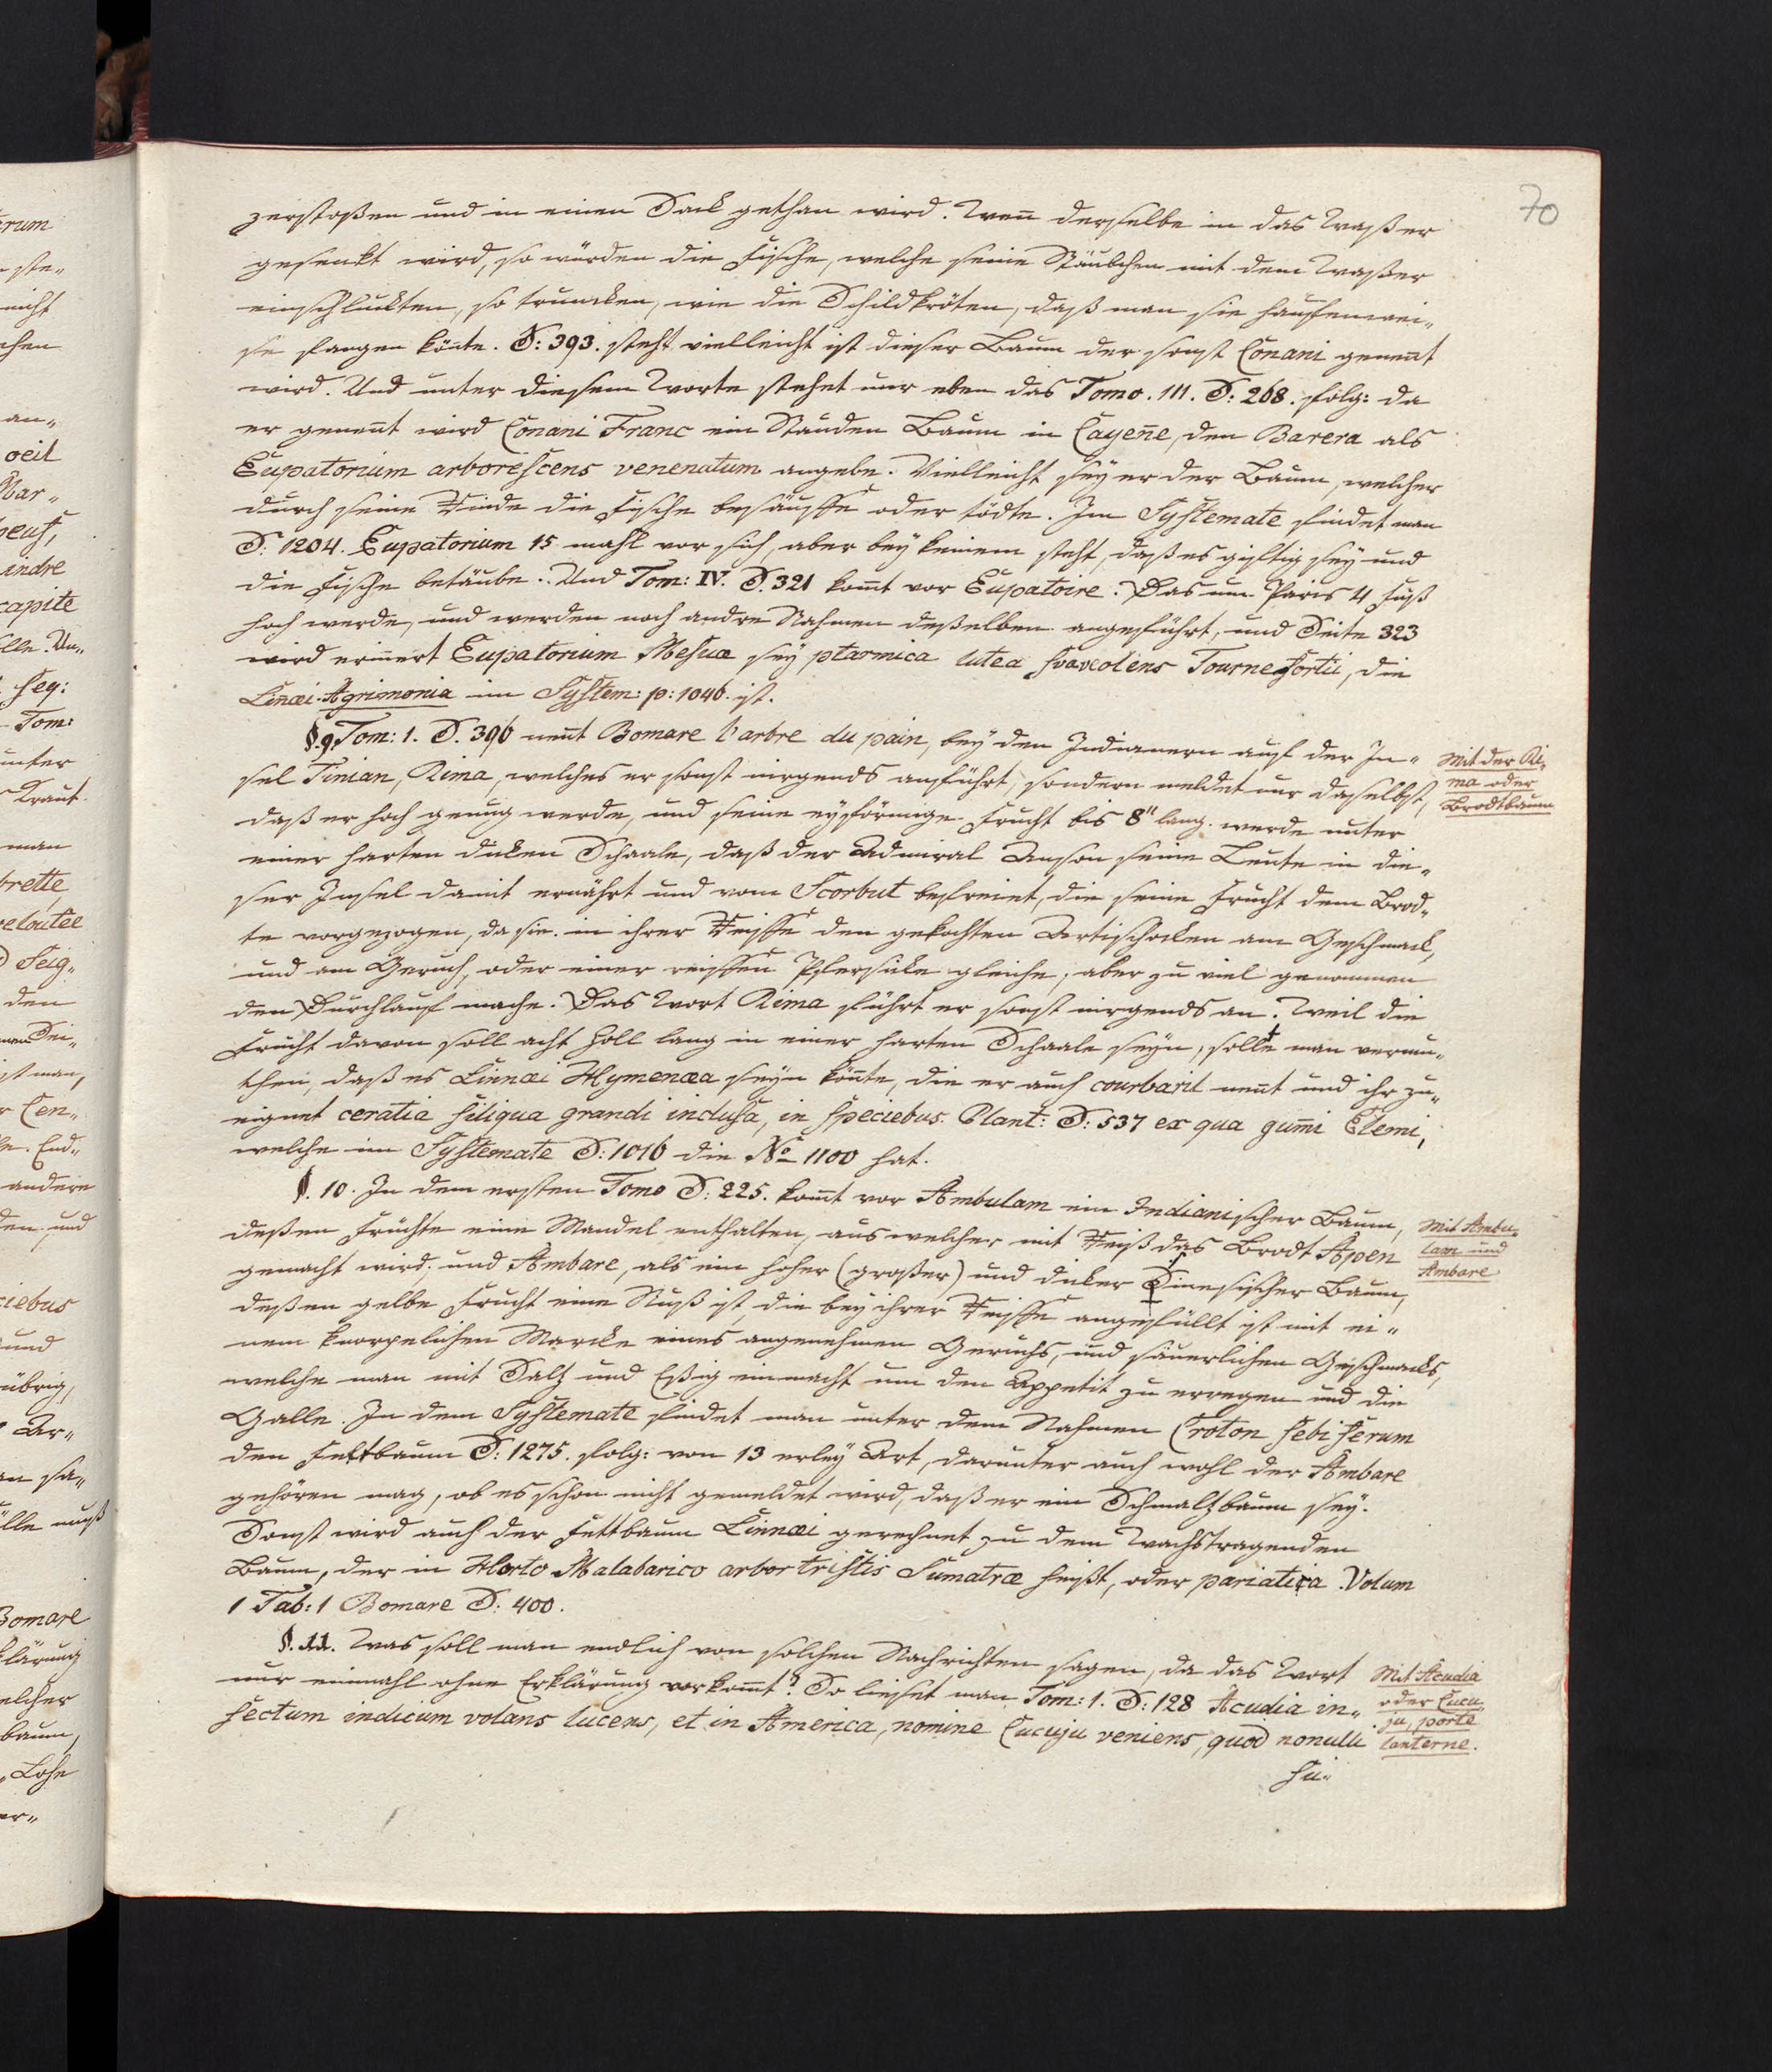 70
zerstoßen und in einen Sack gethan wird. Weñ derselbe in das Waßer
gesenkt wird, so würden die Fische, welche seine Stäubchen mit dem Waßer
einschluckten, so truncken, wie die Schildkröten, daß man sie haufenwei„
se fangen könte. S: 393. steht vielleicht ist dieser Baum der sonst Conani geneñt
wird. Und unter diesem Worte stehet nur eben das Tomo. III. S: 268. folg: da
er geneñt wird Conani Franc ein Stauden Baum in Cayeñe, den Barera als
Eupatorium arborescens venenatum angebe. Vielleicht sey er der Baum, welcher
durch seine Rinde die Fische besäuffe oder tödte. Im Systemate findet man
S: 1204. Eupatorium 15 mahl vor sich, aber bey keinem steht, daß es giftig sey und
die Fische betäube. Und Tom: IV. S. 321 kom̄t vor Eupatoire. Das um Paris 4 Fuß
hoch werde, und werden noch andre Nahmen deßelben angeführt, und Seite 323
wird eriñert Eupatorium Mesuæ sey ptarmica lutea svaveolens Tournefortii, die
Liñæi Agrimonia im System: p: 1046. ist.
§.9. Tom: 1. S. 396 neñt Bomare l'arbre du pain, bey den Indianern auf der In„
sel Tinian, Rima, welches er sonst nirgends anführt, sondern meldet nur daselbst,
daß er hoch genug werde, und seine eyförmige Frucht bis 8" lang. werde unter
einer harten dicken Schaale, daß der Admiral Anson seine Leute in die„
ser Insel damit ernährt und vom Scorbut befreiet, die seine Frucht dem Brod„
te vorgezogen, da sie in ihrer Reiffe den gekochten Artischocken am Geschmack,
und am Geruch, oder einer reiffen Pfersicke gleiche, aber zu viel genommen
den Durchlauf mache. Das Wort Rima führt er sonst nirgends an. Weil die
Frucht davon soll acht Zoll lang in einer harten Schaale seyn, sollte man vermu„
then, daß es Linnæi Hymenæa seyn könte, die er auch courbaril neñt und ihr zu„
eignet ceratia siliqua grandi inclusa, in speciebus Plant: S: 537 ex qua gum̄i Elemi,
welche im Systemate S: 1016 die No 1100 hat.
Mit der Ri„
ma oder
Brodtbaum
§. 10. In dem ersten Tomo S: 225. kom̄t vor Ambulam ein Indianischer Baum,
deßen Früchte eine Mandel enthalten, aus welcher mit Reiß das Brodt Apen
gemacht wird; und Ambare, als ein hoher (großer) und dicker Sinesischer Baum,
deßen gelbe Frucht eine Nuß ist, die bey ihrer Reiffe angefüllt ist mit ei„
nem knorpelichen Marcke eines angenehmen Geruchs, und säuerlichen Geschmacks,
welche man mit Saltz und Eßig einmacht um den Appetit zu erregen und die
Galle. In dem Systemate findet man unter dem Nahmen Croton sebiferum
den Fettbaum S: 1275. folg: von 13 erley Art, darunter auch wohl der Ambare
gehören mag, ob es schon nicht gemeldet wird, daß er ein Schmaltzbaum sey.
Sonst wird auch der Fettbaum Linnæi gerechnet zu dem Wachstragenden
Baum, der in Horto Malabarico arbor tristis Sumatræ heißt, oder pariatica Volum
1 Tab: 1 Bomare S: 400.
Mit Ambu„
lam und
Ambare
§. 11. Was soll man endlich von solchen Nachrichten sagen, da das Wort
nur einmahl ohne Erklärung vorkom̄t? So lieset man Tom: 1. S: 128 Acudia in„
sectum indicum volans lucens, et in America, nomine Cucuju veniens, quod nonulli
Mit Acudia
oder Cucu„
ju, porte
lanterne.
su„